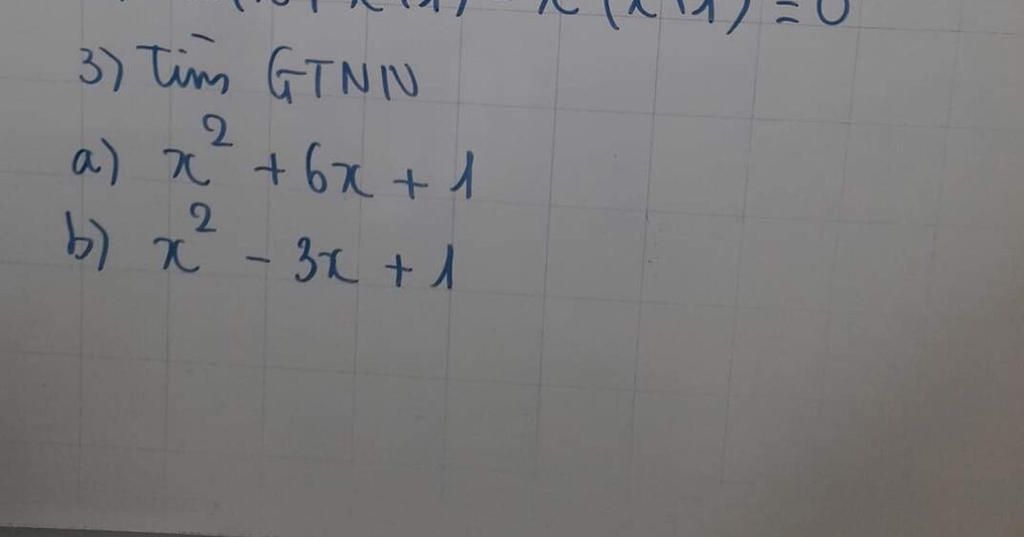 = 0
3) Tìm GTNN
a) x² + 6x + 1
b) x² - 3x + 1